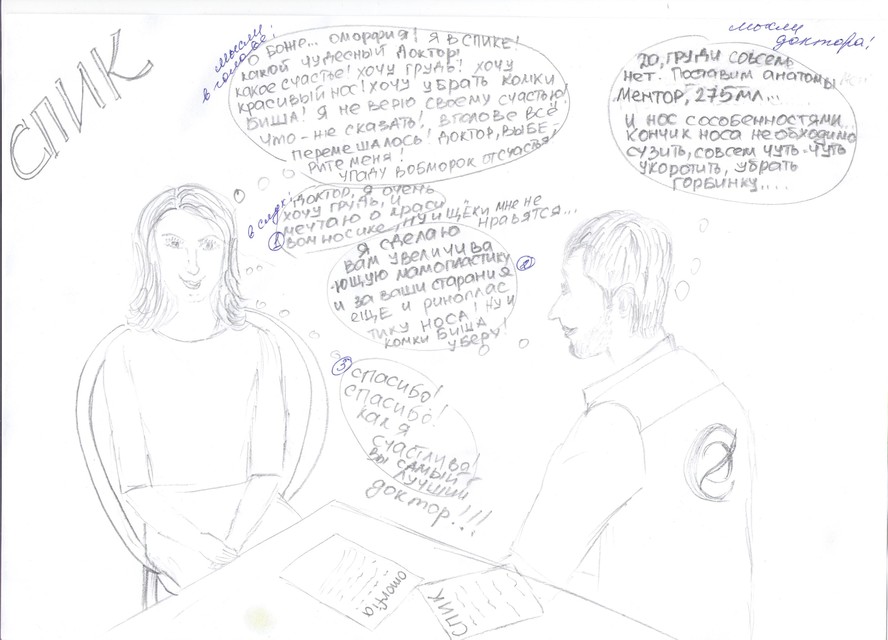 СПИК
мысли
в голове!
О БОЖЕ... ОМОРФИЯ! Я В СПИКЕ!
КАКОЙ ЧУДЕСНЫЙ ДОКТОР!
КАКОЕ СЧАСТЬЕ! ХОЧУ ГРУДЬ! ХОЧУ
КРАСИВЫЙ НОС! ХОЧУ УБРАТЬ КОМКИ
БИША! Я НЕ ВЕРЮ СВОЕМУ СЧАСТЬЮ!
ЧТО-НЕ СКАЗАТЬ! В ГОЛОВЕ ВСЁ
ПЕРЕМЕШАЛОСЬ! ДОКТОР, ВЫБЕ-
РИТЕ МЕНЯ!
УПАДУ В ОБМОРОК ОТ СЧАСТЬЯ!
мысли
доктора!
ДА, ГРУДИ СОВСЕМ
НЕТ. ПОСТАВИМ АНАТОМЫ
МЕНТОР, 275 МЛ...
И НОС С ОСОБЕННОСТЯМИ...
КОНЧИК НОСА НЕОБХОДИМО
СУЗИТЬ, СОВСЕМ ЧУТЬ-ЧУТЬ
УКОРОТИТЬ, УБРАТЬ
ГОРБИНКУ....
в слух!
1
ДОКТОР, Я ОЧЕНЬ
ХОЧУ ГРУДЬ, И
МЕЧТАЮ О КРАСИ
ВОМ НОСИКЕ, НУ И ЩЁКИ МНЕ НЕ
НРАВЯТСЯ...
2
Я СДЕЛАЮ
ВАМ УВЕЛИЧИВА
-ЮЩУЮ МАМОПЛАСТИКУ
И ЗА ВАШИ СТАРАНИЯ
ЕЩЕ И РИНОПЛАС
ТИКУ НОСА! НУ И
КОМКИ БИША
УБЕРУ!
3
СПАСИБО!
СПАСИБО!
КАК Я
СЧАСТЛИВА!
ВЫ САМЫЙ
ЛУЧШИЙ
ДОКТОР!!!
omorfia
СПИК